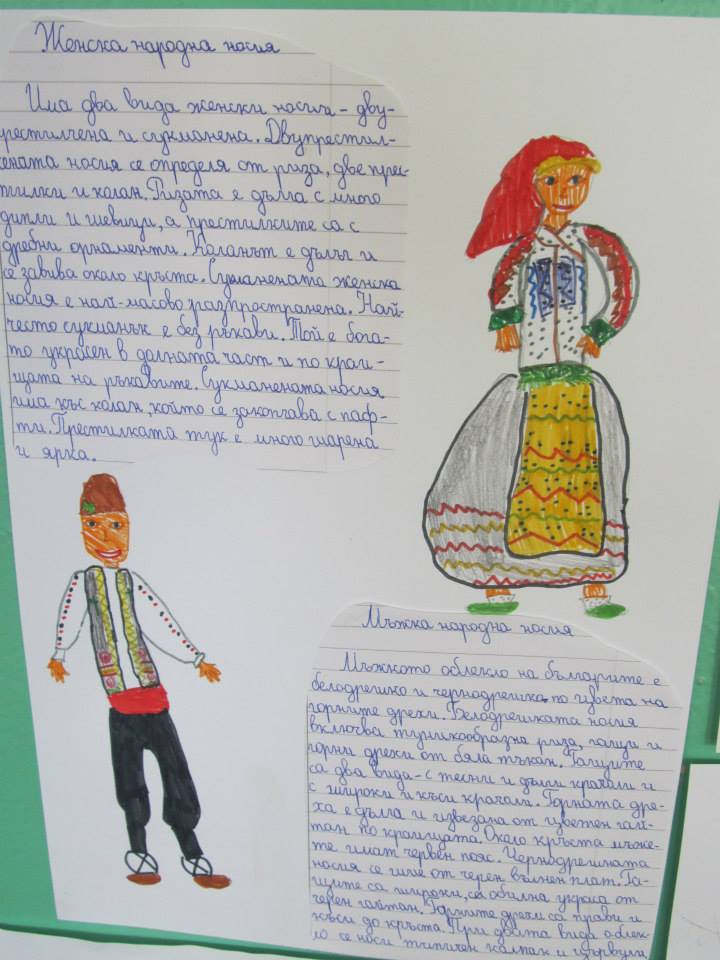 Женска народна носия
Има два вида женски носии - дву-
престилчена и сукманена. Двупрестил-
чената носия се определя от риза, две прес-
тилки и колан. Ризата е дълга с много
дипли и шевици, а престилките са с
дребни орнаменти. Коланът е дълъг и
се завива около кръста. Сукманената женска
носия е най-масово разпространена. Най-
често сукманът е без ръкави. Той е бога-
то украсен в долната част и по краи-
щата на ръкавите. Сукманената носия
има къс колан, който се закопчава с паф-
ти. Престилката тук е много шарена
и ярка.
Мъжка народна носия
Мъжкото облекло на българите е
белодрешно и чернодрешно по цвета на
горните дрехи. Белодрешката носия
включва туникообразна риза, гащи и
горни дрехи от бяла тъкан. Гащите
са два вида - с тесни и дълги крачоли и
с широки и къси крачоли. Горната дре-
ха е дълга и извезана от цветен гай-
тан по краищата. Около кръста мъже-
те имат червен пояс. Чернодрешната
носия се шие от черен вълнен плат. Га-
щите са широки, с обилна украса от
черен гайтан. Горните дрехи са прави и
къси до кръста. При двата вида облек-
ло се носи типичен калпак и цървули.